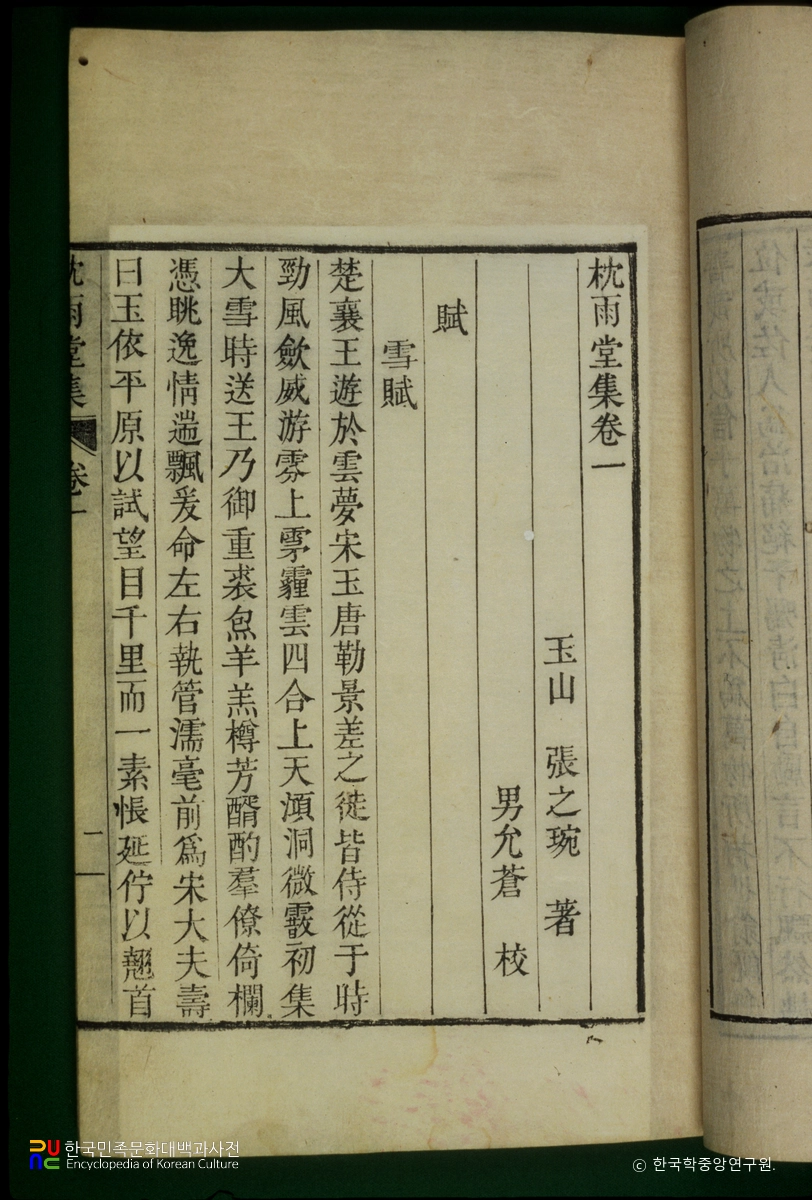 枕雨堂集卷一
玉山 張之琬 著
男允蒼 校
賦
雪賦
楚襄王遊於雲夢宋玉唐勒景差之徒皆侍從于時
勁風歛威游雰上雺霾雲四合上天澒洞微霰初集
大雪時送王乃御重裘炰羊羔樽芳醑酌羣僚倚欄
憑眺逸情遄飄爰命左右執管濡毫前爲宋大夫壽
曰玉依平原以試望目千里而一素悵延佇以翹首
枕雨堂集 卷一 二
한국민족문화대백과사전
Encyclopedia of Korean Culture
ⓒ 한국학중앙연구원.